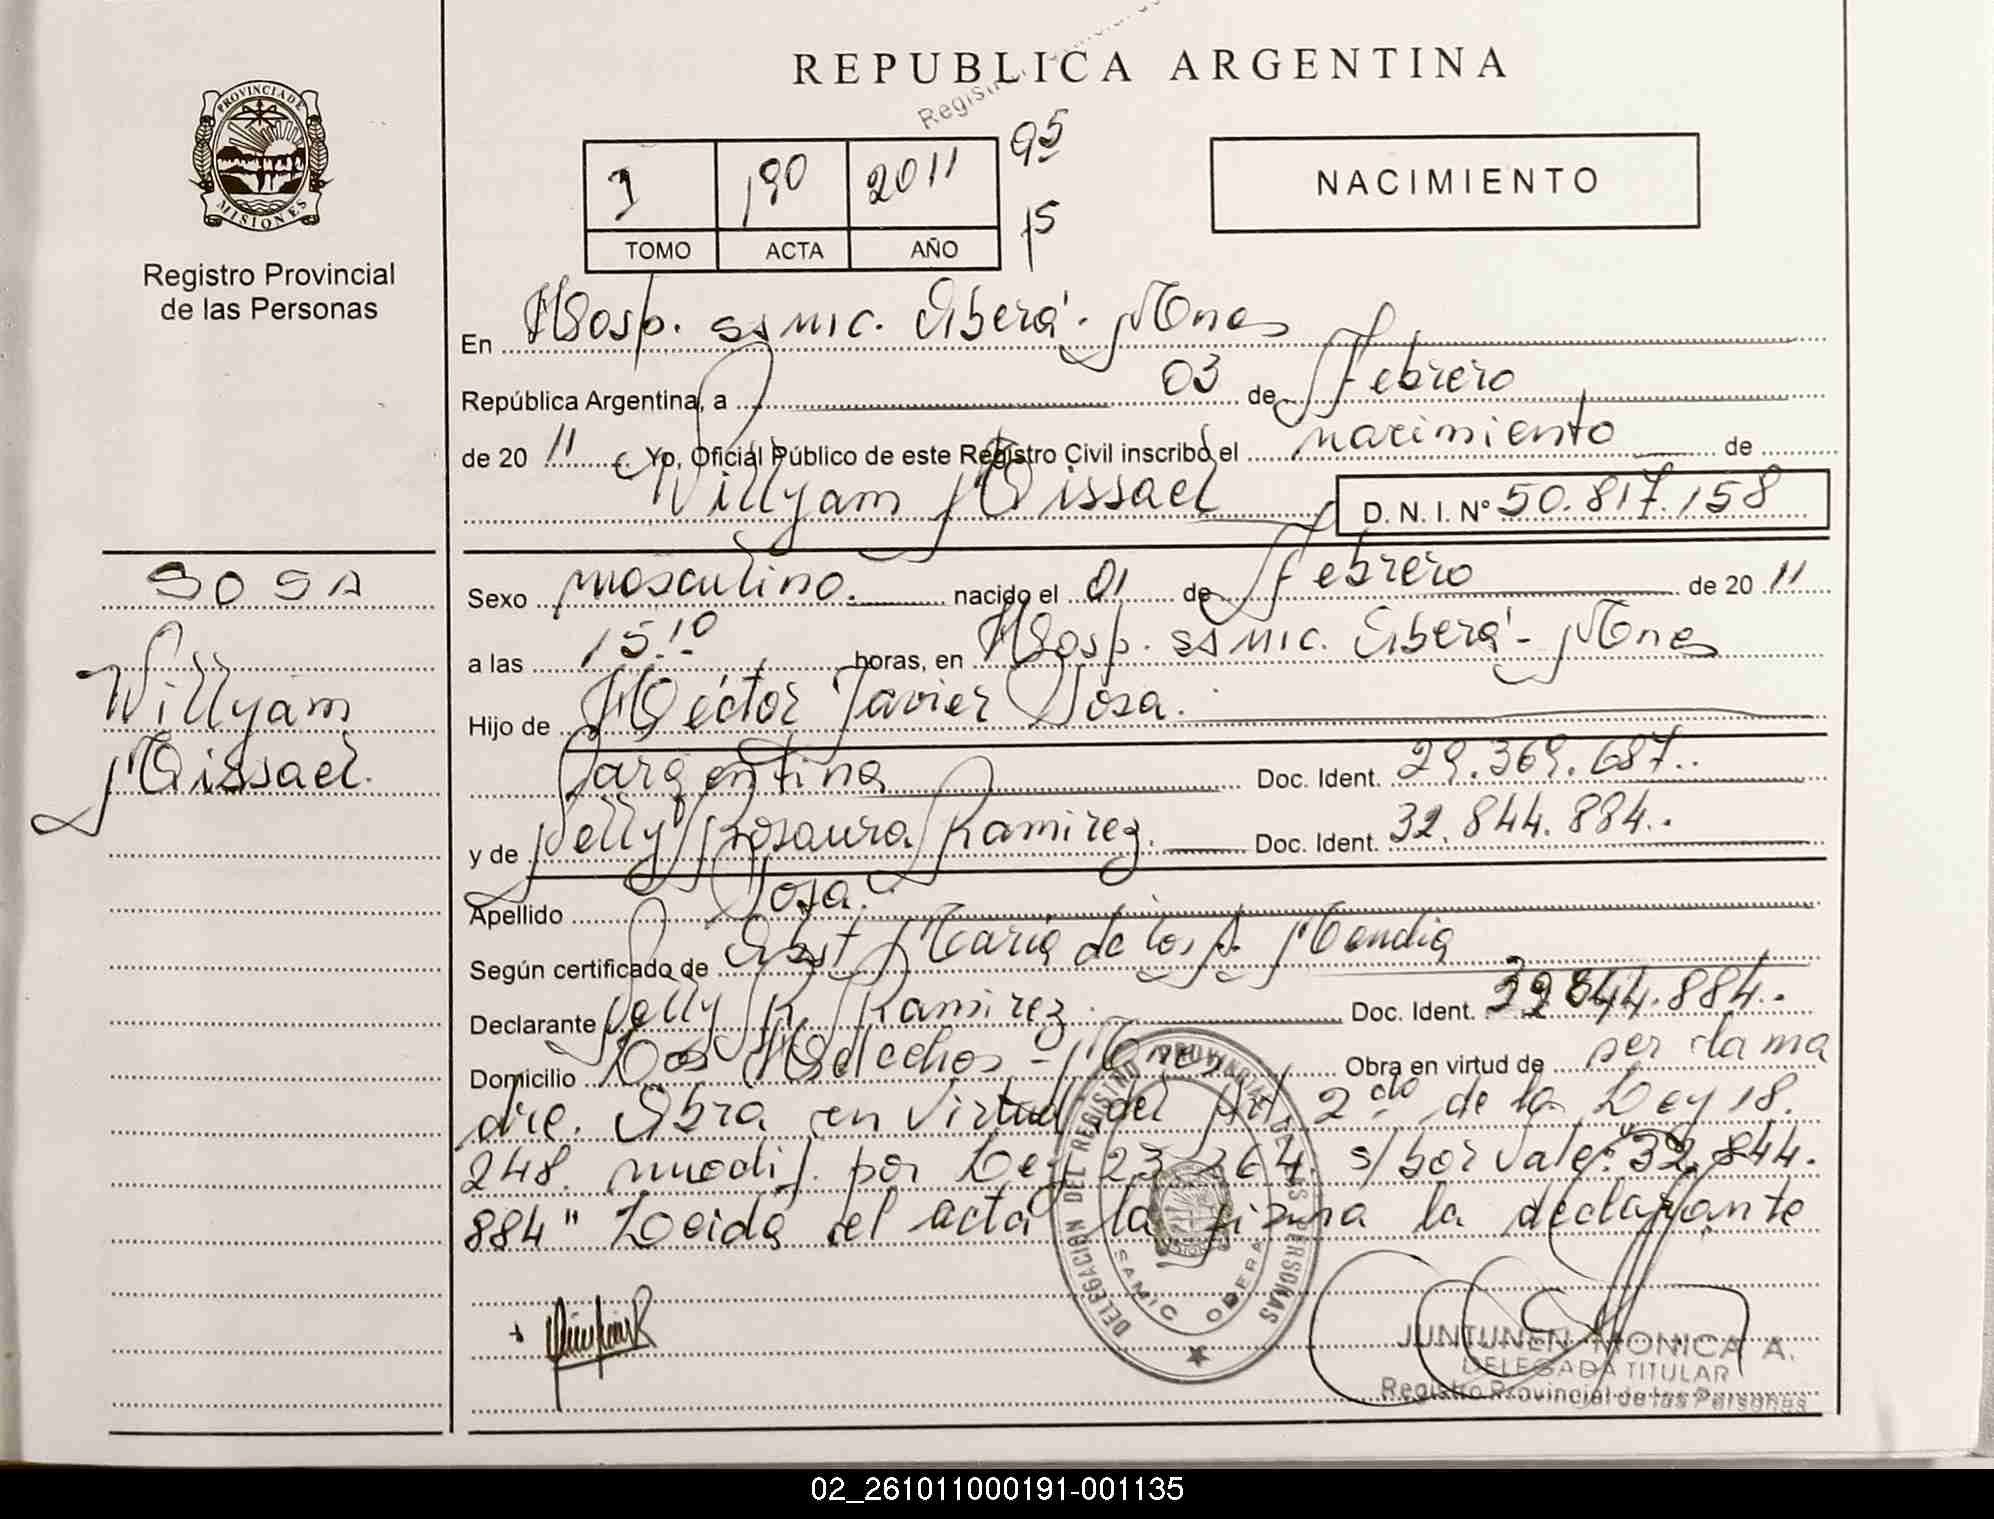 REPUBLICA ARGENTINA
PROVINCIA DE
MISIONES
Registro Provincial
de las Personas
1 190 2011
TOMO ACTA AÑO
95
15
NACIMIENTO
En Hosp. SAMIC. Oberá - Mnes
República Argentina, a 03 de Febrero
de 20 11 Yo, Oficial Público de este Registro Civil inscribo el nacimiento de
Willyam Missael D. N. I. Nº 50.817.158
SOSA
Willyam
Missael.
Sexo masculino. nacido el 01 de Febrero de 20 11
a las 15.10 horas, en Hosp. SAMIC. Oberá - Mnes
Hijo de Héctor Javier Sosa.
argentina Doc. Ident. 29.369.687..
y de Nelly Rosaura Ramirez. Doc. Ident. 32.844.884..
Apellido Sosa.
Según certificado de Obst María de los A. Mendia
Declarante Nelly R. Ramirez. Doc. Ident. 32844.884..
Domicilio Dos Helechos - Mnes Obra en virtud de ser la ma
dre. Obra en virtud del Art 2do de la Ley 18.
248. modif. por Ley 23.264. s/bor vale: "32.844.
884" Leida el acta la firma la declarante
DELEGACION DEL REGISTRO PROVINCIAL DE LAS PERSONAS
SAMIC OBERA
JUNTUNEN MONICA A.
DELEGADA TITULAR
Registro Provincial de las Personas
02_261011000191-001135